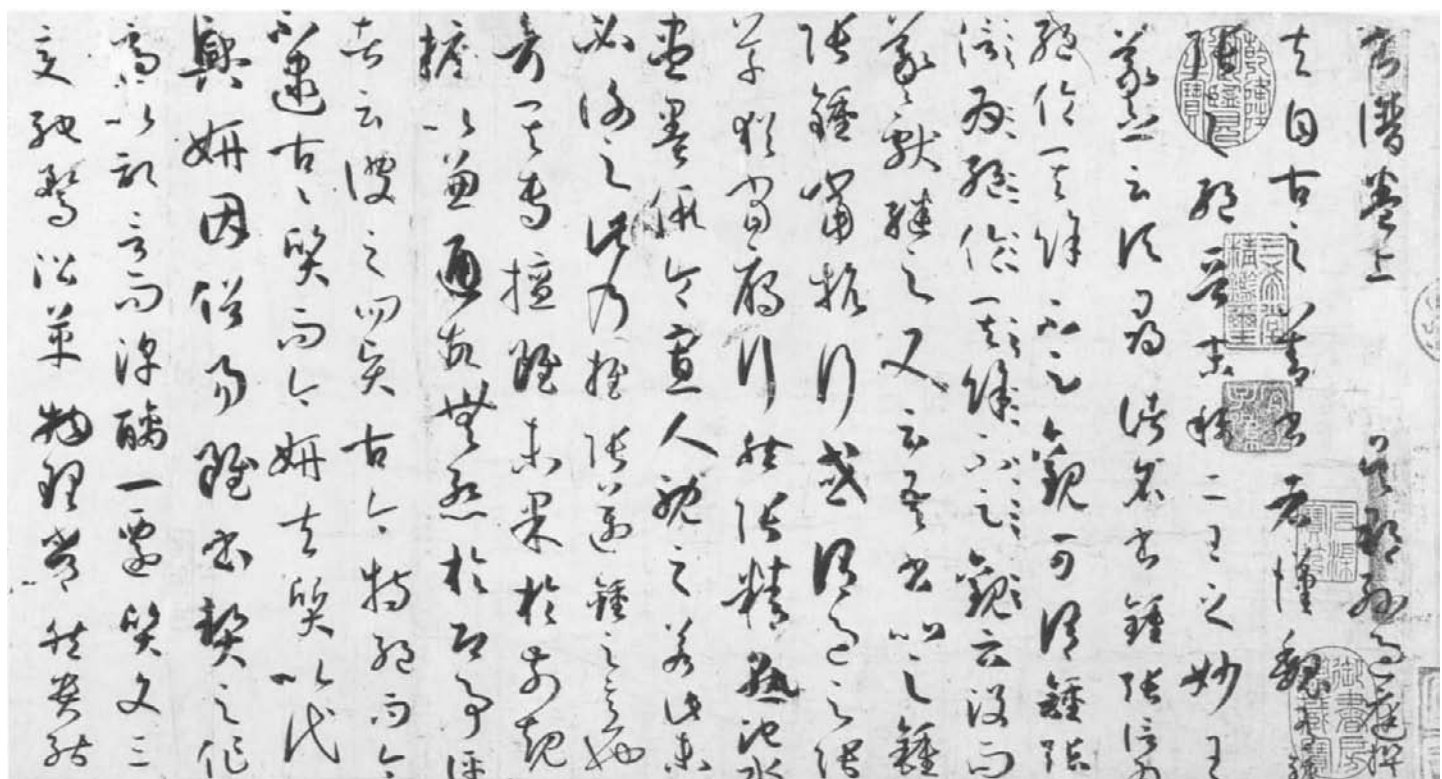 書譜卷上 吳郡孫過庭撰
夫自古之善書者漢魏有鍾
張之絕晉末稱二王之妙王
羲之云頃尋諸名書鍾張信為
絕倫其餘不足觀可謂鍾張
信為絕倫其餘不足觀云沒而
羲獻繼之又云吾書比之鍾
張鍾當抗行或謂過之張
草猶當鴈行然張精熟池水
盡墨假令寡人耽之若此未
必謝之此乃推張邁鍾之意也
考其專擅雖未果於前規
摭以兼通故無慙於即事評
者云彼之四賢古今特絕而今
不逮古古質而今妍夫質以代
興妍因俗易雖書契之作
適以記言而淳醨一遷質文三
變馳騖沿革物理常然貴能
三希堂精鑑璽
宜子孫
石渠寶笈
御書房鑑藏寶